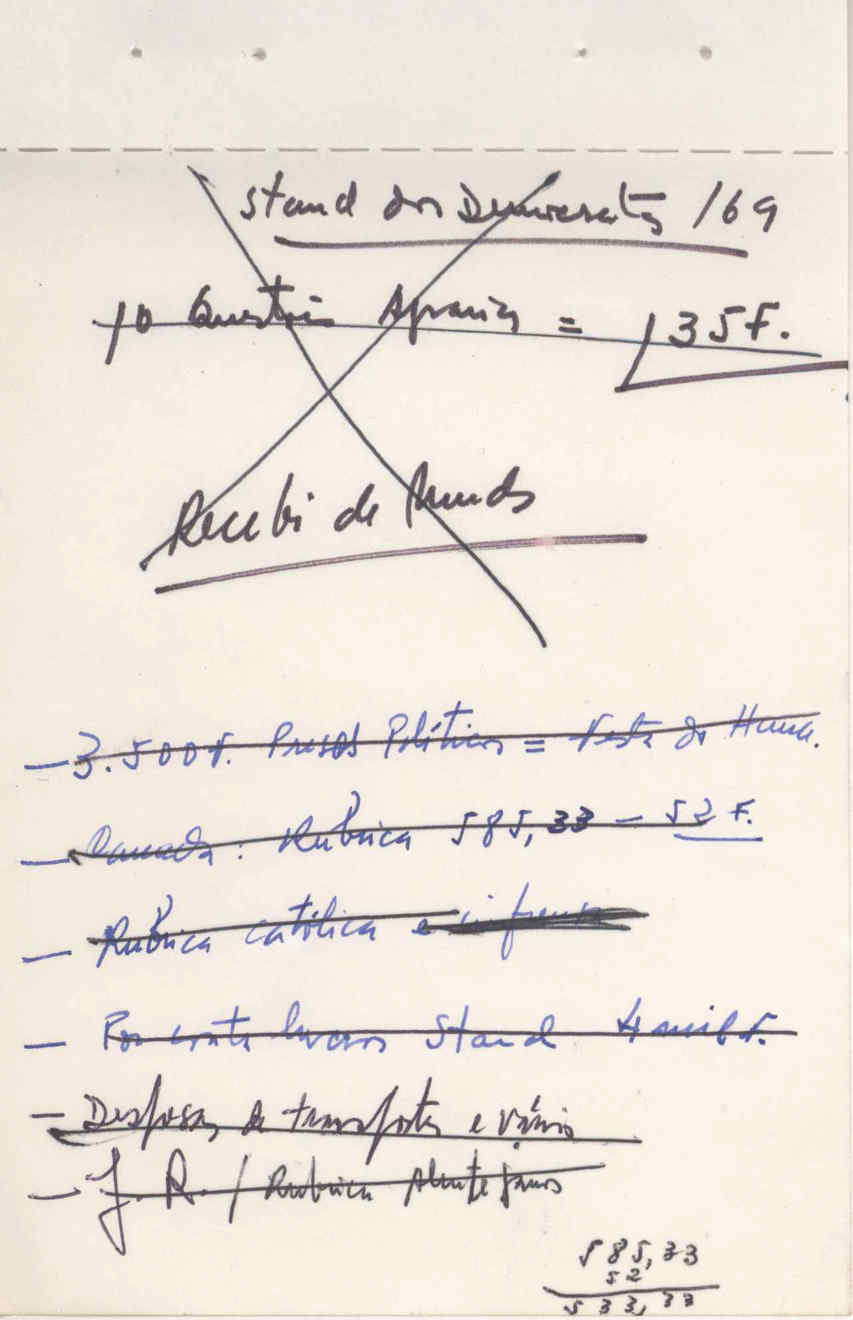 Stand dos Democratas /69
10 Questões Agrárias = 135 F.
Recebi de
- 3.500 F. Presos Políticos = Festa do Huma.
- Camada: Rubrica 585,33 - 52 F.
- Rubrica católica e
- Por conta lucros Stand 4 mil F.
- Despesas de transportes e vários
- J. R. / Rubrica Alentejanos
585,33
52
533,33